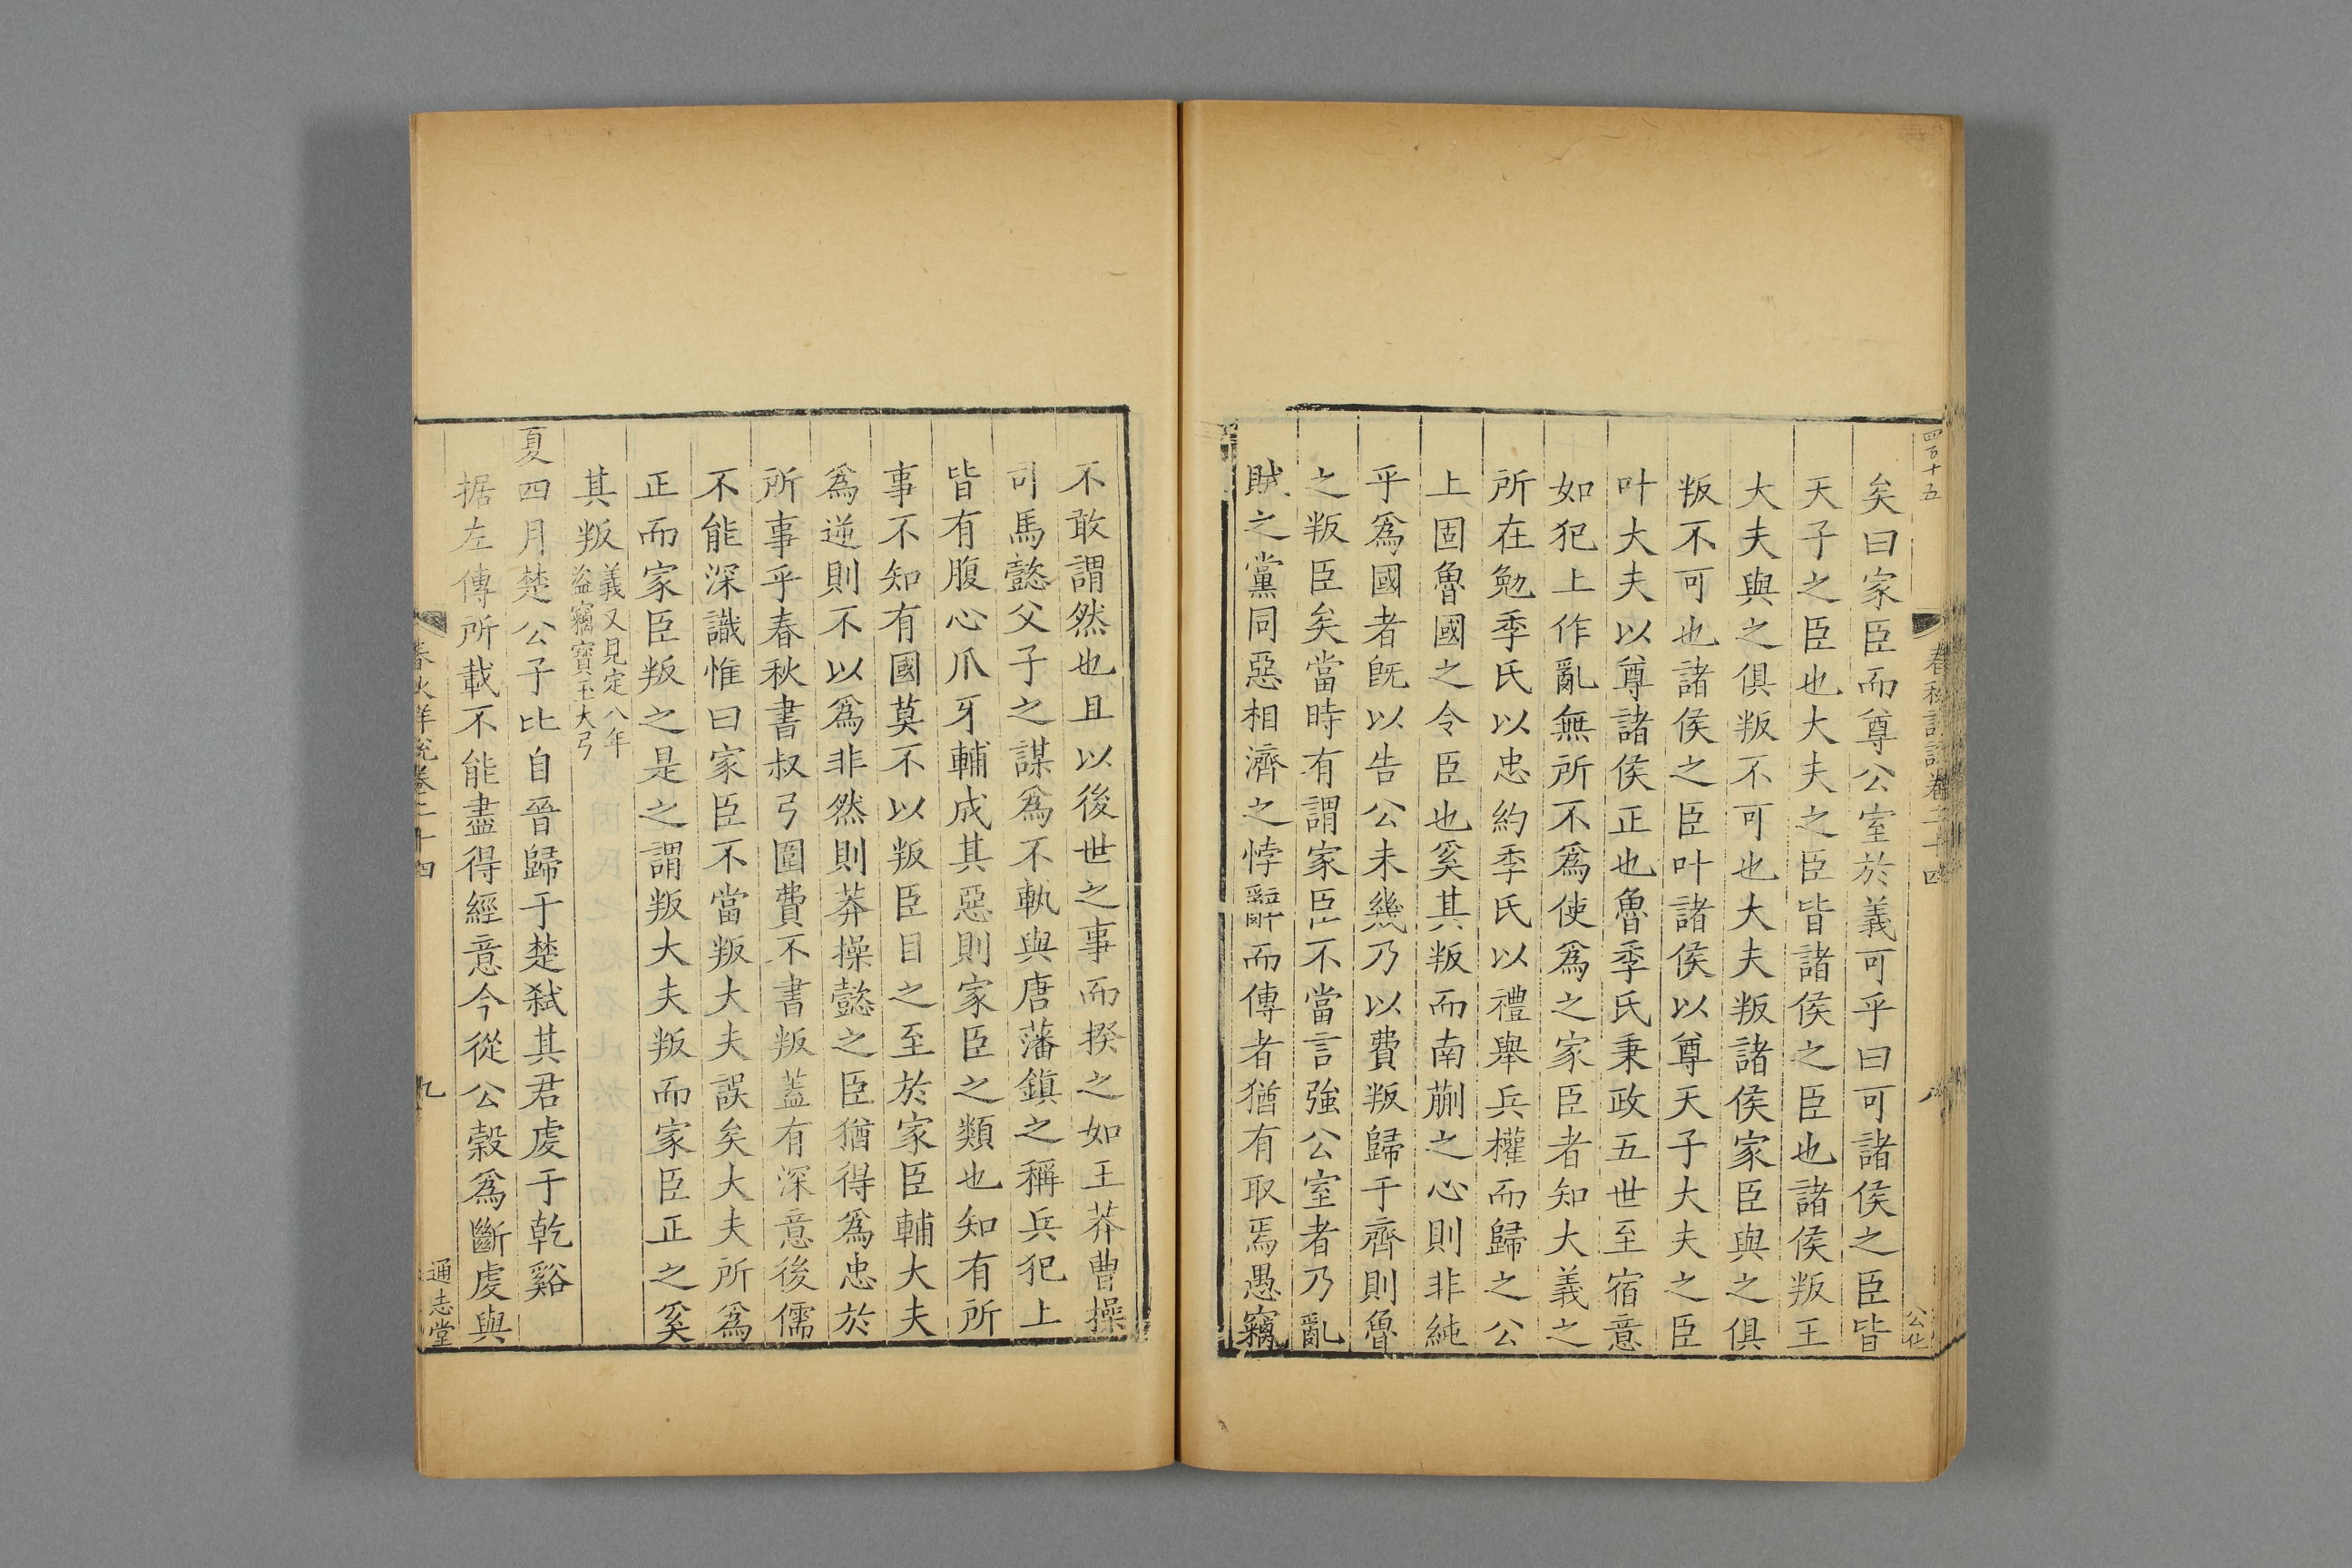 四百十五
春秋詳說卷二十四
八
公化
矣曰家臣而尊公室於義可乎曰可諸侯之臣皆
天子之臣也大夫之臣皆諸侯之臣也諸侯叛王
大夫與之俱叛不可也大夫叛諸侯家臣與之俱
叛不可也諸侯之臣叶諸侯以尊天子大夫之臣
叶大夫以尊諸侯正也魯季氏秉政五世至宿意
如犯上作亂無所不爲使爲之家臣者知大義之
所在勉季氏以忠約季氏以禮舉兵權而歸之公
上固魯國之令臣也奚其叛而南蒯之心則非純
乎爲國者旣以告公未幾乃以費叛歸于齊則魯
之叛臣矣當時有謂家臣不當言強公室者乃亂
賊之黨同惡相濟之悖辭而傳者猶有取焉愚竊
不敢謂然也且以後世之事而揆之如王莽曹操
司馬懿父子之謀爲不軌與唐藩鎮之稱兵犯上
皆有腹心爪牙輔成其惡則家臣之類也知有所
事不知有國莫不以叛臣目之至於家臣輔大夫
爲逆則不以爲非然則莽操懿之臣猶得爲忠於
所事乎春秋書叔弓圍費不書叛蓋有深意後儒
不能深識惟曰家臣不當叛大夫誤矣大夫所爲
正而家臣叛之是之謂叛大夫叛而家臣正之奚
其叛義又見定八年
盜竊寶玉大弓
夏四月楚公子比自晉歸于楚弒其君虔于乾谿
据左傳所載不能盡得經意今從公穀爲斷虔與
春秋詳說卷二十四
九
通志堂